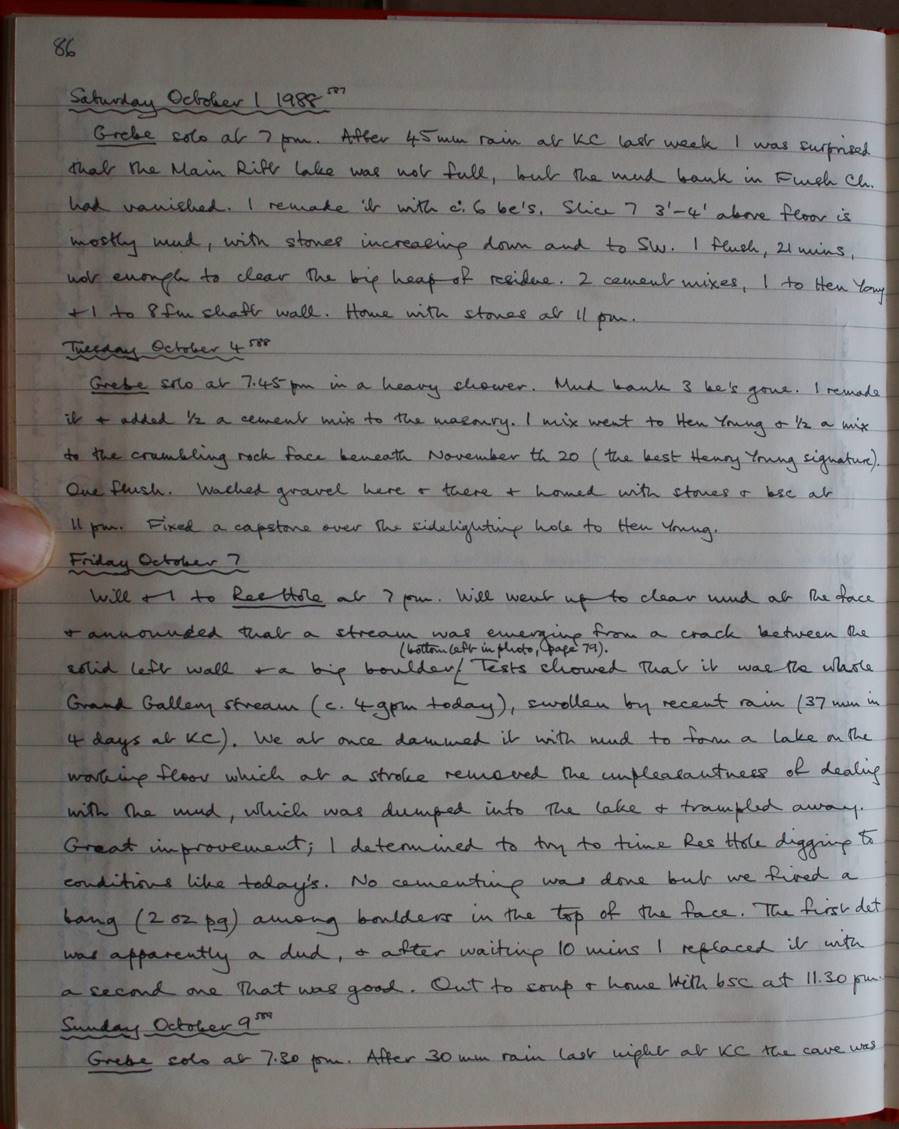 86
Saturday October 1 1988 587
Grebe solo at 7 pm. After 45mm rain at KC last week I was surprised
that the Main Rift Lake was not full, but the mud bank in Flush Ch.
had vanished. I remade it with c. 6 be's. Slice 7 3'-4' above floor is
mostly mud, with stones increasing down and to SW. 1 flush, 21 mins,
not enough to clear the big heap of residue. 2 cement mixes, 1 to Hen Young
+ 1 to 8fm shaft wall. Home with stones at 11 pm.
Tuesday October 4 588
Grebe solo at 7.45 pm in a heavy shower. Mud bank 3 be's gone. I remade
it + added ½ a cement mix to the masonry. 1 mix went to Hen Young + ½ a mix
to the crumbling rock face beneath November th 20 (the best Henry Young signature).
One flush. Washed gravel here + there + homed with stones + bsc at
11 pm. Fixed a capstone over the sidelighting hole to Hen Young.
Friday October 7
Will + 1 to Res Hole at 7 pm. Will went up to clear mud at the face
+ announded that a stream was emerging from a crack between the
(bottom left in photo, page 79).
solid left wall + a big boulder. Tests showed that it was the whole
Grand Gallery stream (c. 4gpm today), swollen by recent rain (37 mm in
4 days at KC). We at once dammed it with mud to form a lake on the
working floor which at a stroke removed the unpleasantness of dealing
with the mud, which was dumped into the lake + trampled away.
Great improvement; I determined to try to time Res Hole digging to
conditions like today's. No cementing was done but we fired a
bang (2 oz pg) among boulders in the top of the face. The first det
was apparently a dud, + after waiting 10 mins I replaced it with
a second one that was good. Out to soup + home with bsc at 11.30 pm.
Sunday October 9 589
Grebe solo at 7.30 pm. After 30 mm rain last night at KC the cave was